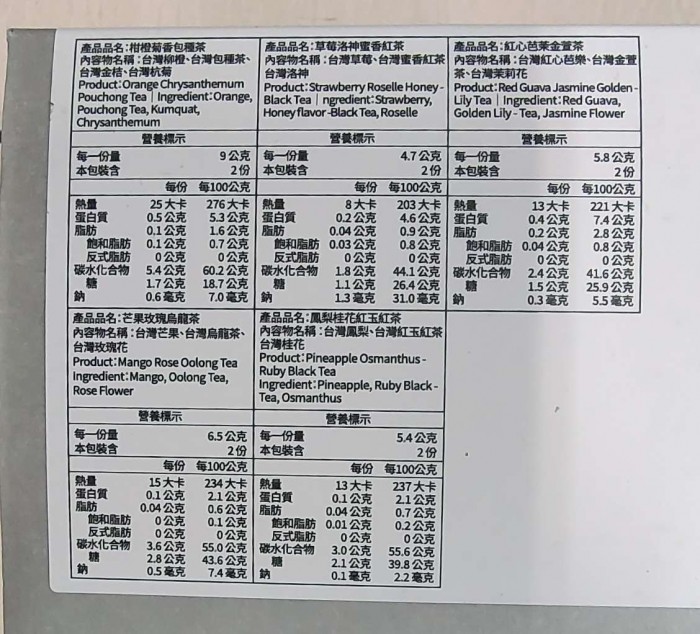 產品品名:柑橙菊香包種茶
內容物名稱:台灣柳橙、台灣包種茶、
台灣金桔、台灣杭菊
Product:Orange Chrysanthemum
Pouchong Tea | Ingredient:Orange,
Pouchong Tea, Kumquat,
Chrysanthemum
營養標示
每一份量 9公克
本包裝含 2份
每份 每100公克
熱量 25大卡 276大卡
蛋白質 0.5公克 5.3公克
脂肪 0.1公克 1.6公克
飽和脂肪 0.1公克 0.7公克
反式脂肪 0公克 0公克
碳水化合物 5.4公克 60.2公克
糖 1.7公克 18.7公克
鈉 0.6毫克 7.0毫克
產品品名:草莓洛神蜜香紅茶
內容物名稱:台灣草莓、台灣蜜香紅茶
台灣洛神
Product:Strawberry Roselle Honey-
Black Tea | ngredient:Strawberry,
Honey flavor-Black Tea, Roselle
營養標示
每一份量 4.7公克
本包裝含 2份
每份 每100公克
熱量 8大卡 203大卡
蛋白質 0.2公克 4.6公克
脂肪 0.04公克 0.9公克
飽和脂肪 0.03公克 0.8公克
反式脂肪 0公克 0公克
碳水化合物 1.8公克 44.1公克
糖 1.1公克 26.4公克
鈉 1.3毫克 31.0毫克
產品品名:紅心芭萊金萱茶
內容物名稱:台灣紅心芭樂、台灣金萱
茶、台灣茉莉花
Product:Red Guava Jasmine Golden-
Lily Tea | Ingredient:Red Guava,
Golden Lily-Tea, Jasmine Flower
營養標示
每一份量 5.8公克
本包裝含 2份
每份 每100公克
熱量 13大卡 221大卡
蛋白質 0.4公克 7.4公克
脂肪 0.2公克 2.8公克
飽和脂肪 0.04公克 0.8公克
反式脂肪 0公克 0公克
碳水化合物 2.4公克 41.6公克
糖 1.5公克 25.9公克
鈉 0.3毫克 5.5毫克
產品品名:芒果玫瑰烏龍茶
內容物名稱:台灣芒果、台灣烏龍茶、
台灣玫瑰花
Product:Mango Rose Oolong Tea
Ingredient:Mango, Oolong Tea,
Rose Flower
營養標示
每一份量 6.5公克
本包裝含 2份
每份 每100公克
熱量 15大卡 234大卡
蛋白質 0.1公克 2.1公克
脂肪 0.04公克 0.6公克
飽和脂肪 0公克 0.1公克
反式脂肪 0公克 0公克
碳水化合物 3.6公克 55.0公克
糖 2.8公克 43.6公克
鈉 0.5毫克 7.4毫克
產品品名:鳳梨桂花紅玉紅茶
內容物名稱:台灣鳳梨、台灣紅玉紅茶
台灣桂花
Product:Pineapple Osmanthus-
Ruby Black Tea
Ingredient:Pineapple, Ruby Black-
Tea, Osmanthus
營養標示
每一份量 5.4公克
本包裝含 2份
每份 每100公克
熱量 13大卡 237大卡
蛋白質 0.1公克 2.1公克
脂肪 0.04公克 0.7公克
飽和脂肪 0.01公克 0.2公克
反式脂肪 0公克 0公克
碳水化合物 3.0公克 55.6公克
糖 2.1公克 39.8公克
鈉 0.1毫克 2.2毫克